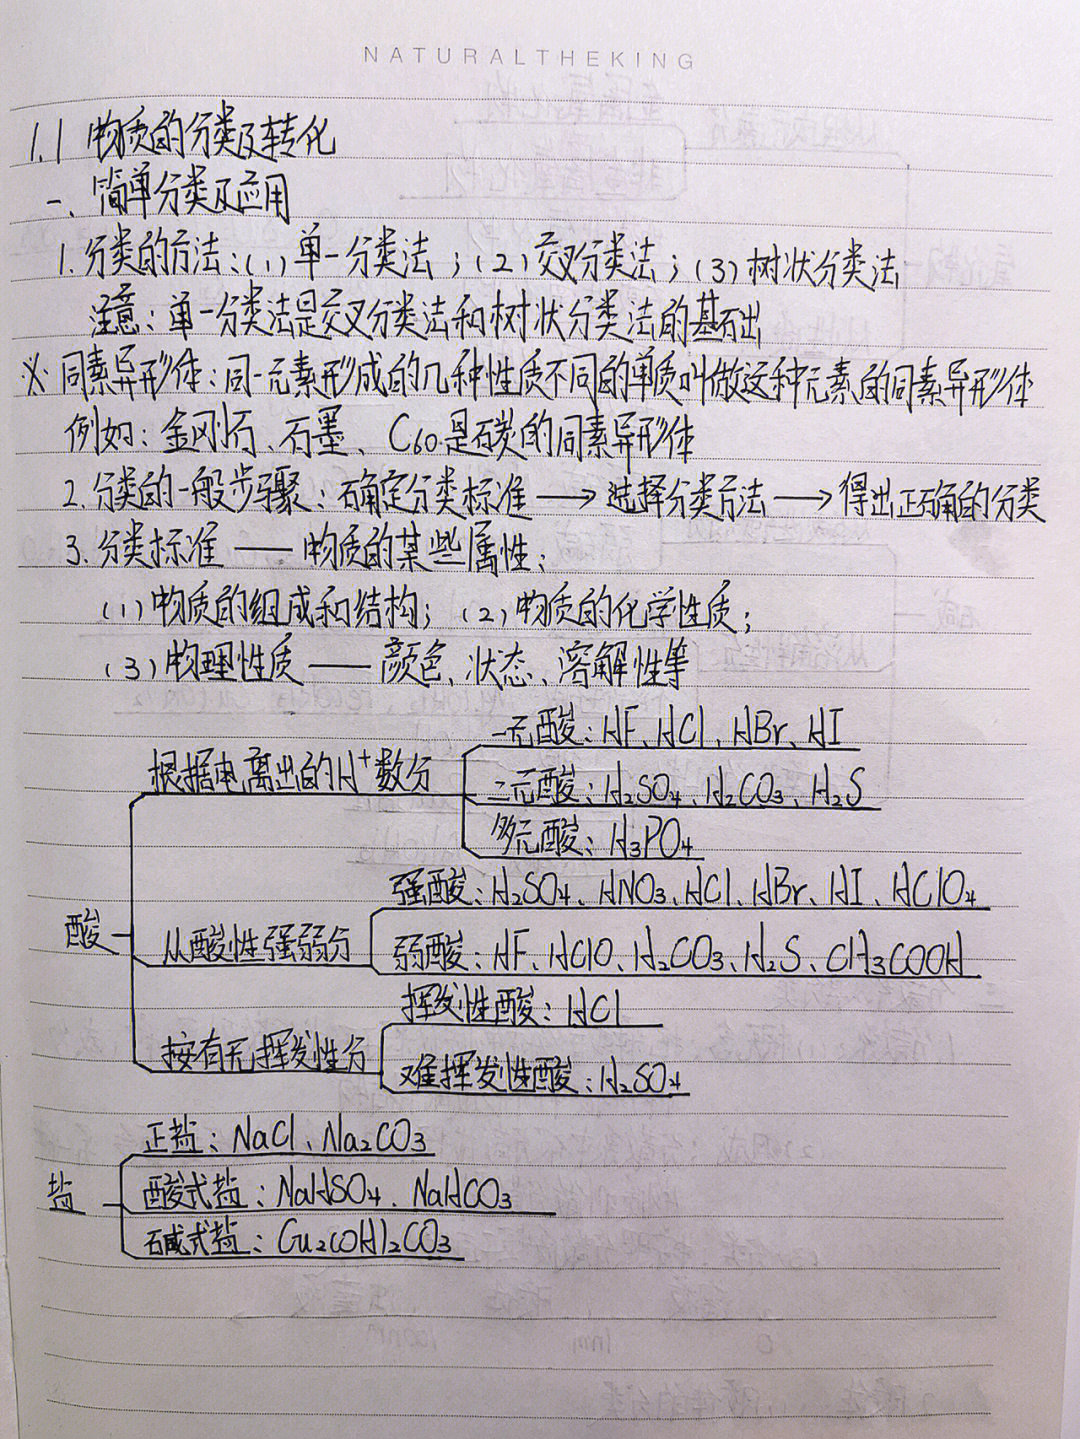 NATURALTHEKING
1.1 物质的分类及转化
一、简单分类及应用
1. 分类的方法:(1)单一分类法;(2)交叉分类法;(3)树状分类法
注意:单一分类法是交叉分类法和树状分类法的基础
※ 同素异形体:同一元素形成的几种性质不同的单质叫做这种元素的同素异形体
例如:金刚石、石墨、C60是碳的同素异形体
2. 分类的一般步骤:确定分类标准 → 选择分类方法 → 得出正确的分类
3. 分类标准 —— 物质的某些属性:
(1)物质的组成和结构;(2)物质的化学性质;
(3)物理性质 —— 颜色、状态、溶解性等
酸
根据电离出的H⁺数分
一元酸:HF、HCl、HBr、HI
二元酸:H₂SO₄、H₂CO₃、H₂S
多元酸:H₃PO₄
从酸性强弱分
强酸:H₂SO₄、HNO₃、HCl、HBr、HI、HClO₄
弱酸:HF、HClO、H₂CO₃、H₂S、CH₃COOH
按有无挥发性分
挥发性酸:HCl
难挥发性酸:H₂SO₄
盐
正盐:NaCl、Na₂CO₃
酸式盐:NaHSO₄、NaHCO₃
碱式盐:Cu₂(OH)₂CO₃